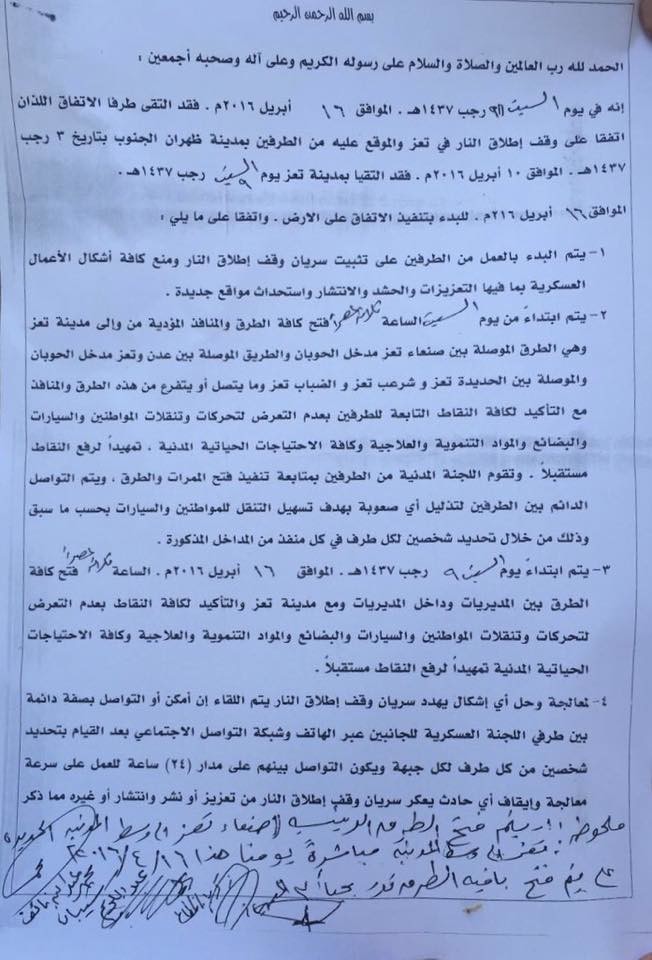 بسم الله الرحمن الرحيم
الحمد لله رب العالمين والصلاة والسلام على رسوله الكريم وعلى آله وصحبه أجمعين :
إنه في يوم السبت ٩ رجب ١٤٣٧هـ . الموافق ١٦ أبريل ٢٠١٦م . فقد التقى طرفا الاتفاق اللذان
اتفقا على وقف إطلاق النار في تعز والموقع عليه من الطرفين بمدينة ظهران الجنوب بتاريخ ٣ رجب
١٤٣٧هـ . الموافق ١٠ أبريل ٢٠١٦م . فقد التقيا بمدينة تعز يوم السبت ٩ رجب ١٤٣٧هـ .
الموافق ١٦ أبريل ٢١٦م . للبدء بتنفيذ الاتفاق على الارض . واتفقا على ما يلي :
١- يتم البدء بالعمل من الطرفين على تثبيت سريان وقف إطلاق النار ومنع كافة أشكال الأعمال
العسكرية بما فيها التعزيزات والحشد والانتشار واستحداث مواقع جديدة .
٢- يتم ابتداءً من يوم السبت الساعة ثلاثة عصراً فتح كافة الطرق والمنافذ المؤدية من وإلى مدينة تعز
وهي الطرق الموصلة بين صنعاء تعز مدخل الحوبان والطريق الموصلة بين عدن وتعز مدخل الحوبان
والموصلة بين الحديدة تعز و شرعب تعز و الضباب تعز وما يتصل أو يتفرع من هذه الطرق والمنافذ
مع التأكيد لكافة النقاط التابعة للطرفين بعدم التعرض لتحركات وتنقلات المواطنين والسيارات
والبضائع والمواد التنموية والعلاجية وكافة الاحتياجات الحياتية المدنية . تمهيداً لرفع النقاط
مستقبلاً . وتقوم اللجنة المدنية من الطرفين بمتابعة تنفيذ فتح الممرات والطرق ، ويتم التواصل
الدائم بين الطرفين لتذليل أي صعوبة بهدف تسهيل التنقل للمواطنين والسيارات بحسب ما سبق
وذلك من خلال تحديد شخصين لكل طرف في كل منفذ من المداخل المذكورة .
٣- يتم ابتداءً يوم السبت ٩ رجب ١٤٣٧هـ . الموافق ١٦ أبريل ٢٠١٦م . الساعة ثلاثة عصراً فتح كافة
الطرق بين المديريات وداخل المديريات ومع مدينة تعز والتأكيد لكافة النقاط بعدم التعرض
لتحركات وتنقلات المواطنين والسيارات والبضائع والمواد التنموية والعلاجية وكافة الاحتياجات
الحياتية المدنية تمهيداً لرفع النقاط مستقبلاً .
٤- لمعالجة وحل أي إشكال يهدد سريان وقف إطلاق النار يتم اللقاء إن أمكن أو التواصل بصفة دائمة
بين طرفي اللجنة العسكرية للجانبين عبر الهاتف وشبكة التواصل الاجتماعي بعد القيام بتحديد
شخصين من كل طرف لكل جبهة ويكون التواصل بينهم على مدار (٢٤) ساعة للعمل على سرعة
معالجة وإيقاف أي حادث يعكر سريان وقف إطلاق النار من تعزيز أو نشر وانتشار أو غيره مما ذكر
ملحوظة : يتم فتح الطرق الرئيسية صنعاء تعز وسط المدينة الحديدة
تعز وسط المدينة مباشرة يومنا هذا ١٦/٤/٢٠١٦
يتم فتح باقية الطرق